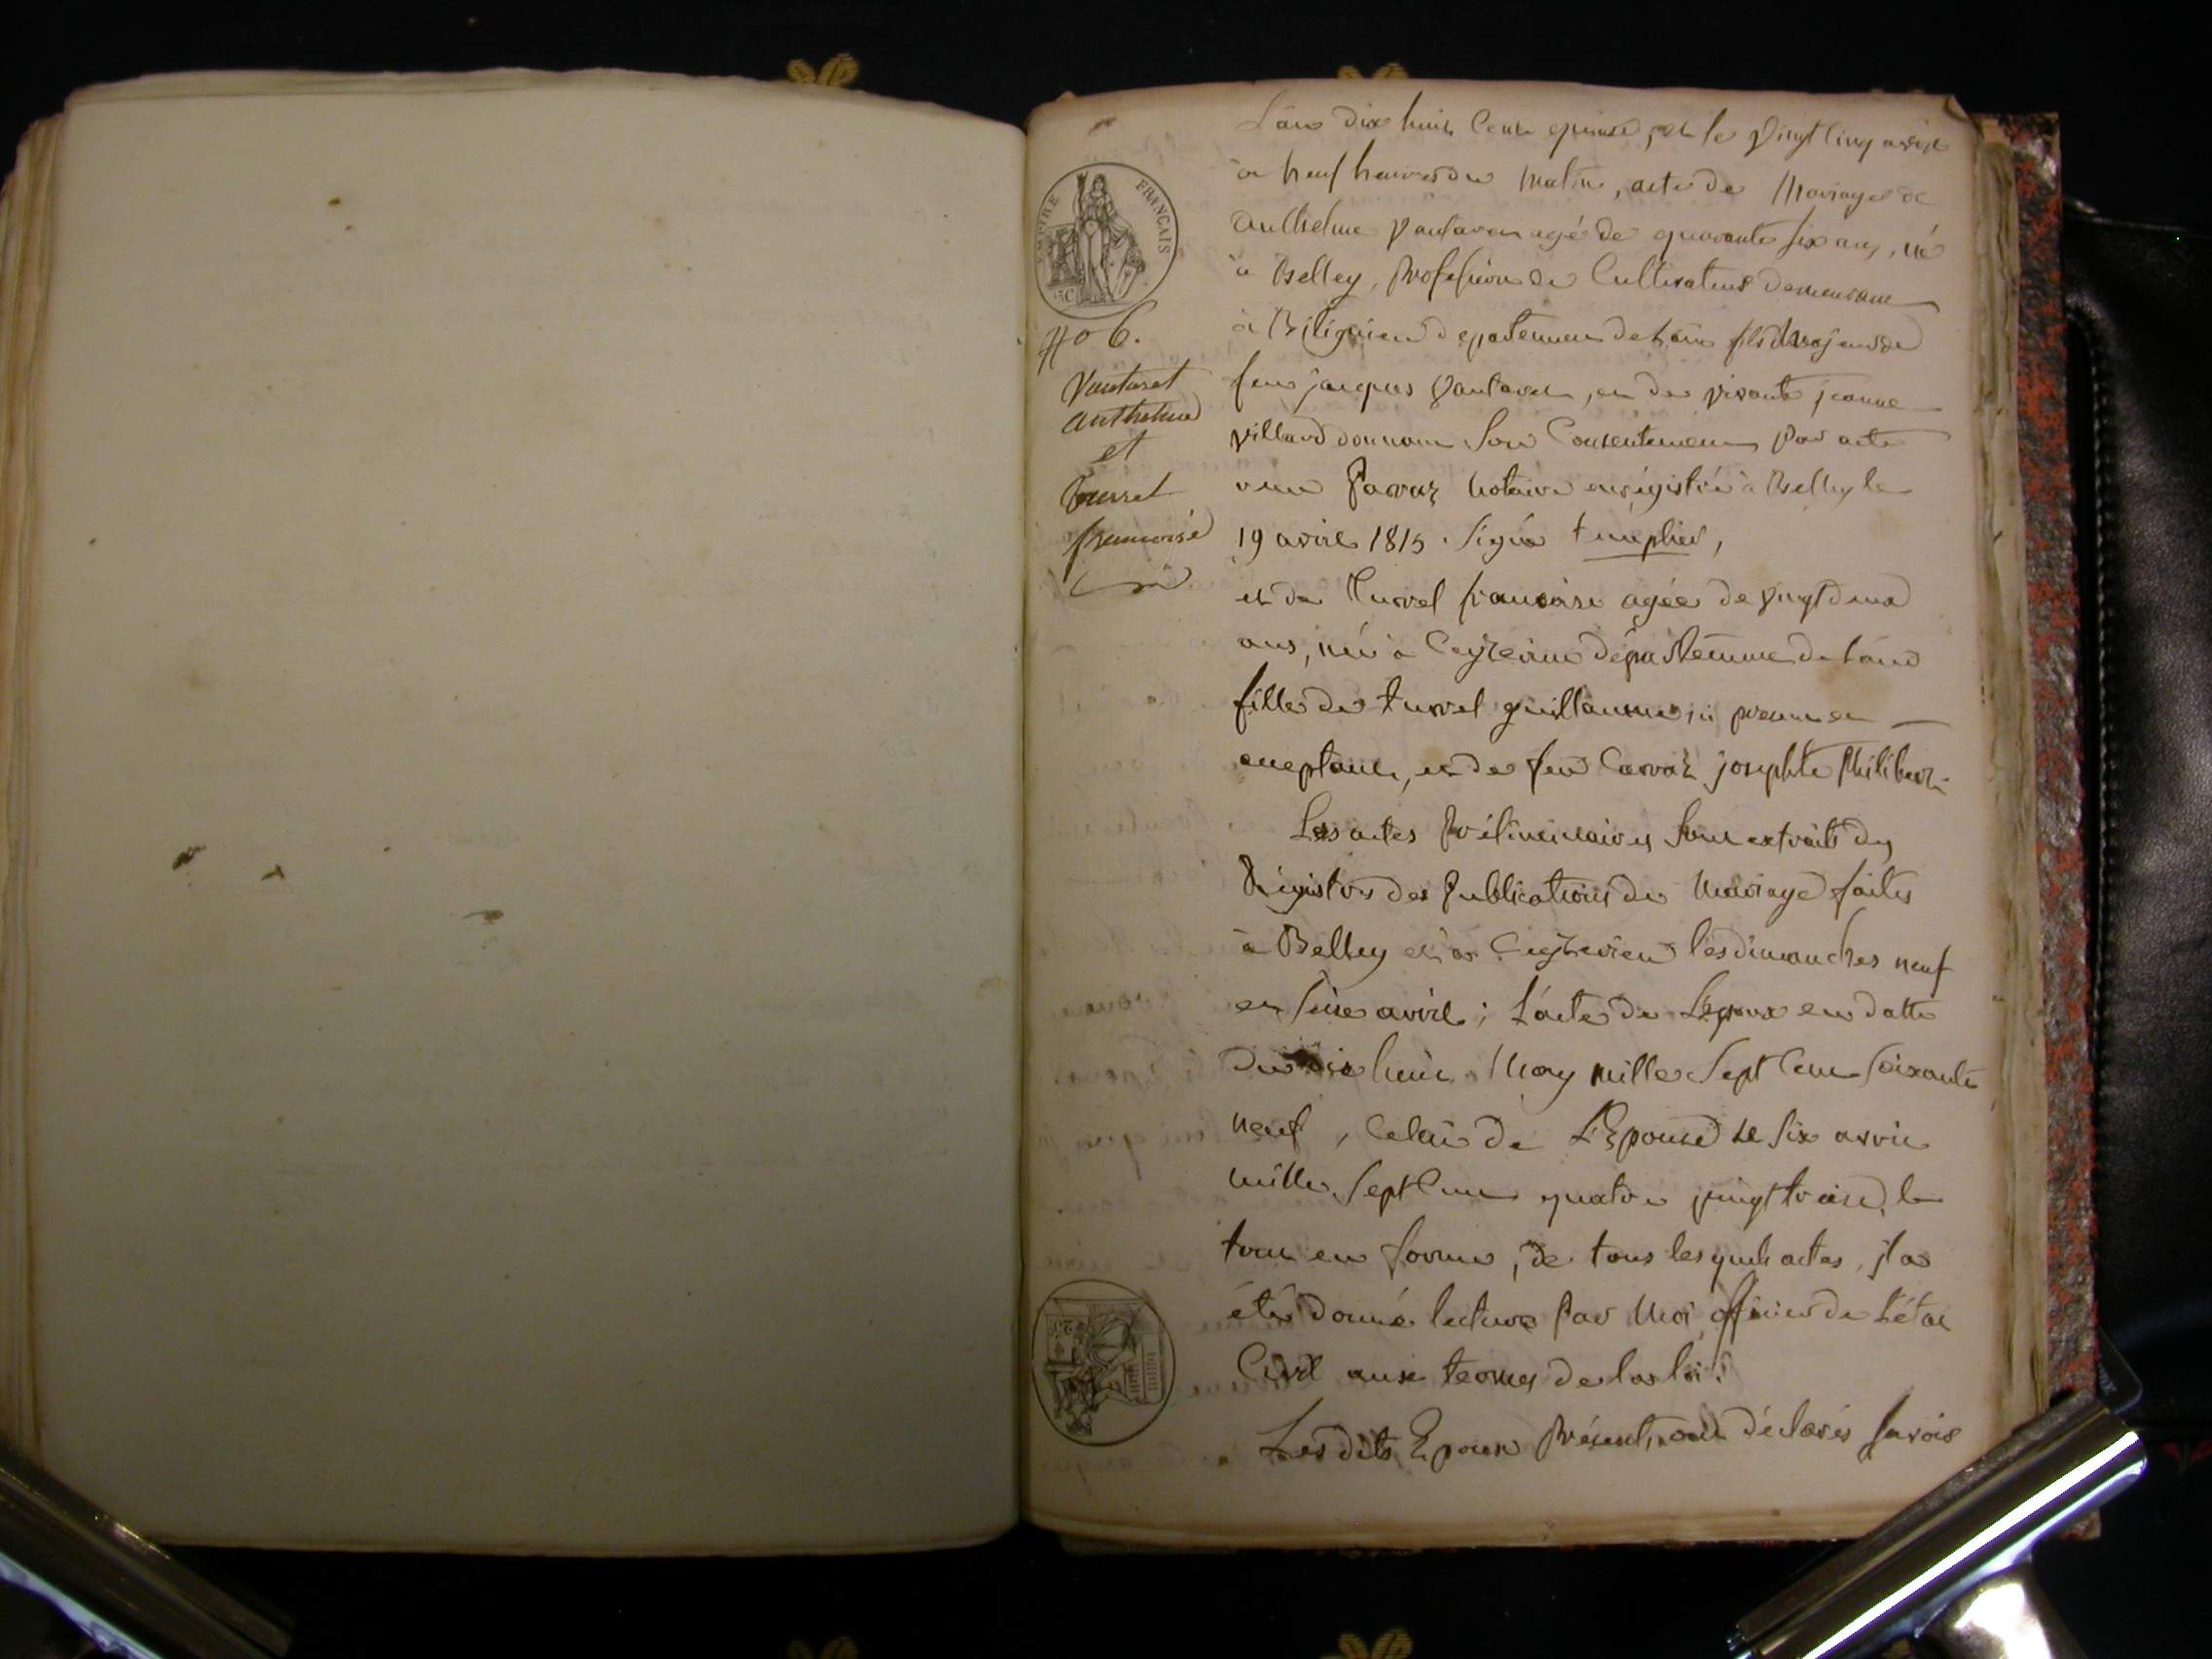 EMPIRE FRANCAIS
N° 6.
Vautaret
anthelme
et
Turrel
francoise
L'an dix huit Cent quinze, et le Vingt Cinq avril
à neuf heures du matin, acte de Mariage de
anthelme Vautaret agé de quarante six ans, né
à Belley, Profession de Cultivateur demeurant
à Bilignieu departement de Lain fils majeur de
feu jacques Vautaret, et de vivante jeanne
villard donnant Son Consentement Par acte
reçu Parraz Notaire enrégistré à Belley le
19 avril 1815. Signé
et de Turrel francoise agée de Vingt deux
ans, née à Ceyzerieu département de Lain
fille de turrel guillaume ici present
acceptant, et de feu josephte Philibert.
Les actes Préliminaires Sont extraits des
Régistres des Publications de Mariage faites
à Belley et à Ceyzerieu les dimanches neuf
et seize avril; L'acte de L'Epoux en datte
du dix huit May mille Sept Cent soixante
neuf, Celui de L'Epouse le six avril
mille Sept Cent quatre vingt treize, le
tout en forme; de tous lesquels actes, il a
été donné lecture Par Moi officier de L'état
Civil aux termes de la loi.
Les dits Epoux Présents, ont déclarés savoir